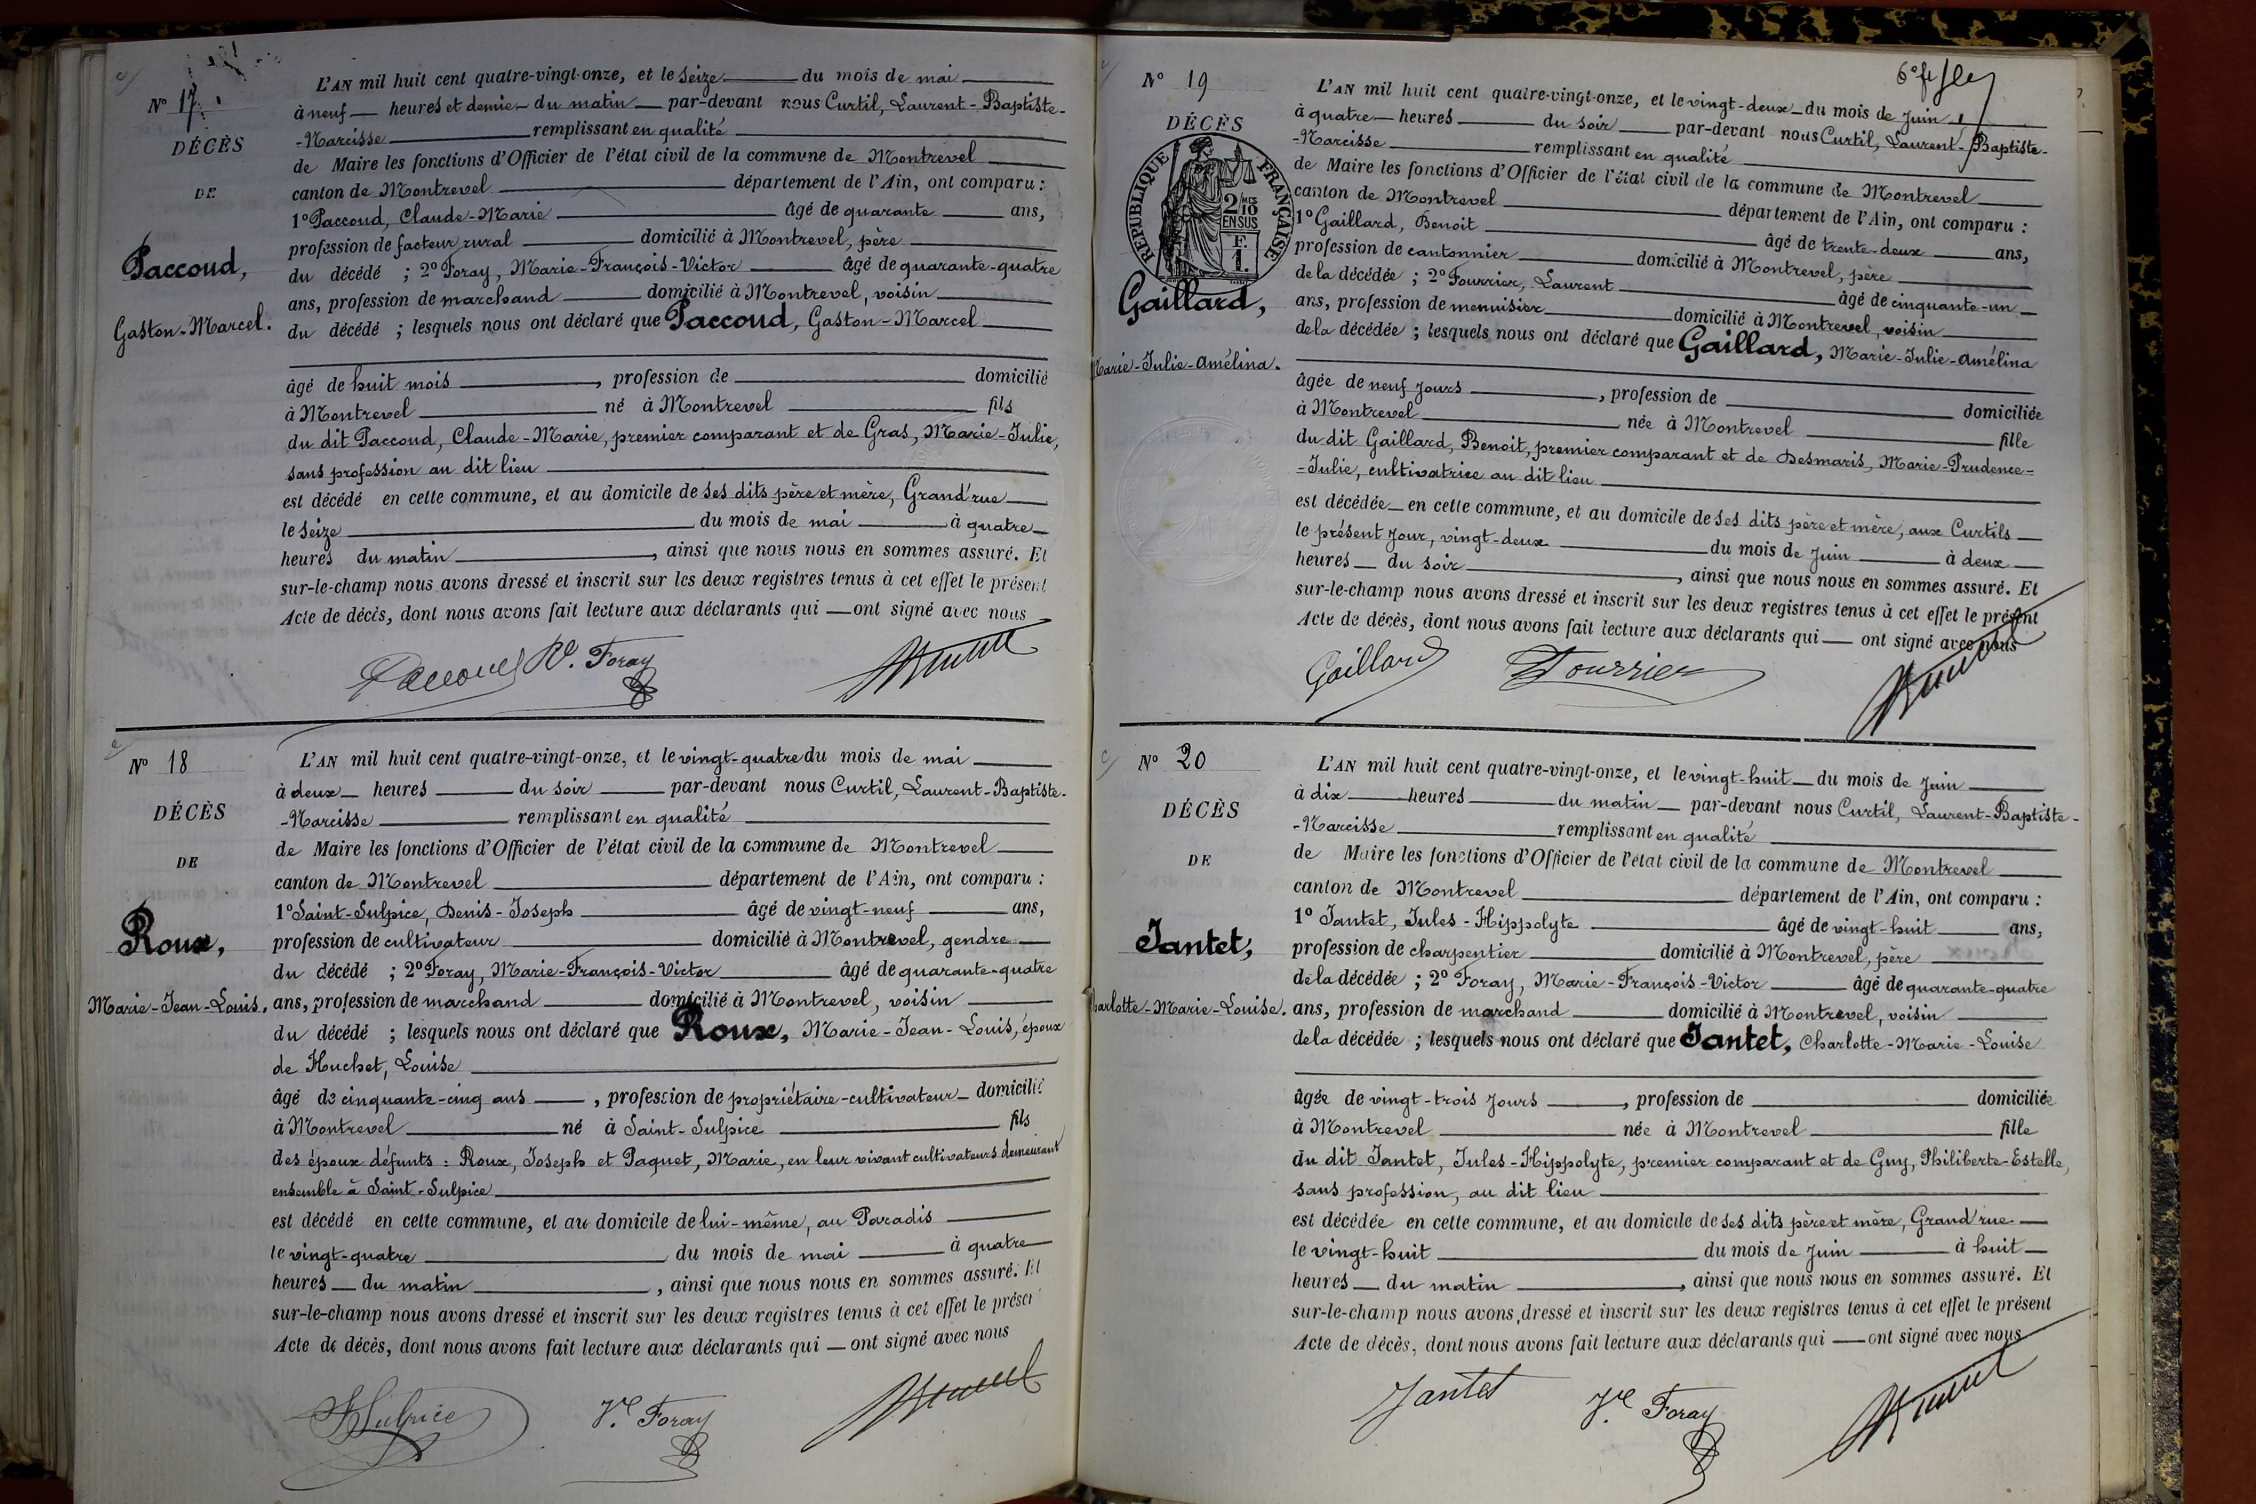 Nº 17
DÉCÈS
DE
Paccoud,
Gaston-Marcel.
L'AN mil huit cent quatre-vingt-onze, et le seize du mois de mai
à neuf heures et demie du matin par-devant nous Curtil, Laurent-Baptiste-
-Narcisse remplissant en qualité
de Maire les fonctions d'Officier de l'état civil de la commune de Montrevel
canton de Montrevel département de l'Ain, ont comparu :
1º Paccoud, Claude-Marie âgé de quarante ans,
profession de facteur rural domicilié à Montrevel, père
du décédé ; 2º Foray, Marie-François-Victor âgé de quarante-quatre
ans, profession de marchand domicilié à Montrevel, voisin
du décédé ; lesquels nous ont déclaré que Paccoud, Gaston-Marcel
âgé de huit mois , profession de domicilié
à Montrevel né à Montrevel fils
du dit Paccoud, Claude-Marie, premier comparant et de Gras, Marie-Julie,
sans profession au dit lieu
est décédé en cette commune, et au domicile de ses dits père et mère, Grand'rue
le seize du mois de mai à quatre
heures du matin , ainsi que nous nous en sommes assuré. Et
sur-le-champ nous avons dressé et inscrit sur les deux registres tenus à cet effet le présent
Acte de décès, dont nous avons fait lecture aux déclarants qui ont signé avec nous
Paccoud Vr. Foray
Nº 18
DÉCÈS
DE
Roux,
Marie-Jean-Louis.
L'AN mil huit cent quatre-vingt-onze, et le vingt-quatre du mois de mai
à deux heures du soir par-devant nous Curtil, Laurent-Baptiste-
-Narcisse remplissant en qualité
de Maire les fonctions d'Officier de l'état civil de la commune de Montrevel
canton de Montrevel département de l'Ain, ont comparu :
1º Saint-Sulpice, Denis-Joseph âgé de vingt-neuf ans,
profession de cultivateur domicilié à Montrevel, gendre
du décédé ; 2º Foray, Marie-François-Victor âgé de quarante-quatre
ans, profession de marchand domicilié à Montrevel, voisin
du décédé ; lesquels nous ont déclaré que Roux, Marie-Jean-Louis, époux
de Huchet, Louise
âgé de cinquante-cinq ans , profession de propriétaire-cultivateur domicilié
à Montrevel né à Saint-Sulpice fils
des époux défunts : Roux, Joseph et Paquet, Marie, en leur vivant cultivateurs demeurant
ensemble à Saint-Sulpice
est décédé en cette commune, et au domicile de lui-même, au Paradis
le vingt-quatre du mois de mai à quatre
heures du matin , ainsi que nous nous en sommes assuré. Et
sur-le-champ nous avons dressé et inscrit sur les deux registres tenus à cet effet le présent
Acte de décès, dont nous avons fait lecture aux déclarants qui ont signé avec nous
StSulpice Vr. Foray
Nº 19
DÉCÈS
RÉPUBLIQUE FRANÇAISE
2/10 MES
EN SUS
F.
1.
Gaillard,
Marie-Julie-Amélina.
L'AN mil huit cent quatre-vingt-onze, et le vingt-deux du mois de juin
à quatre heures du soir par-devant nous Curtil, Laurent-Baptiste-
-Narcisse remplissant en qualité
de Maire les fonctions d'Officier de l'état civil de la commune de Montrevel
canton de Montrevel département de l'Ain, ont comparu :
1º Gaillard, Benoit âgé de trente-deux ans,
profession de cantonnier domicilié à Montrevel, père
de la décédée ; 2º Fourrier, Laurent âgé de cinquante-un
ans, profession de menuisier domicilié à Montrevel, voisin
de la décédée ; lesquels nous ont déclaré que Gaillard, Marie-Julie-Amélina
âgée de neuf jours , profession de domiciliée
à Montrevel née à Montrevel fille
du dit Gaillard, Benoit, premier comparant et de Desmaris, Marie-Prudence-
-Julie, cultivatrice au dit lieu
est décédée en cette commune, et au domicile de ses dits père et mère, aux Curtils
le présent jour, vingt-deux du mois de juin à deux
heures du soir , ainsi que nous nous en sommes assuré. Et
sur-le-champ nous avons dressé et inscrit sur les deux registres tenus à cet effet le présent
Acte de décès, dont nous avons fait lecture aux déclarants qui ont signé avec nous
Gaillard Fourrier
Nº 20
DÉCÈS
DE
Jantet,
Charlotte-Marie-Louise.
L'AN mil huit cent quatre-vingt-onze, et le vingt-huit du mois de juin
à dix heures du matin par-devant nous Curtil, Laurent-Baptiste-
-Narcisse remplissant en qualité
de Maire les fonctions d'Officier de l'état civil de la commune de Montrevel
canton de Montrevel département de l'Ain, ont comparu :
1º Jantet, Jules-Hippolyte âgé de vingt-huit ans,
profession de charpentier domicilié à Montrevel, père
de la décédée ; 2º Foray, Marie-François-Victor âgé de quarante-quatre
ans, profession de marchand domicilié à Montrevel, voisin
de la décédée ; lesquels nous ont déclaré que Jantet, Charlotte-Marie-Louise
âgée de vingt-trois jours , profession de domiciliée
à Montrevel née à Montrevel fille
du dit Jantet, Jules-Hippolyte, premier comparant et de Guy, Philiberte-Estelle,
sans profession, au dit lieu
est décédée en cette commune, et au domicile de ses dits père et mère, Grand'rue
le vingt-huit du mois de juin à huit
heures du matin , ainsi que nous nous en sommes assuré. Et
sur-le-champ nous avons dressé et inscrit sur les deux registres tenus à cet effet le présent
Acte de décès, dont nous avons fait lecture aux déclarants qui ont signé avec nous
Jantet Vr. Foray